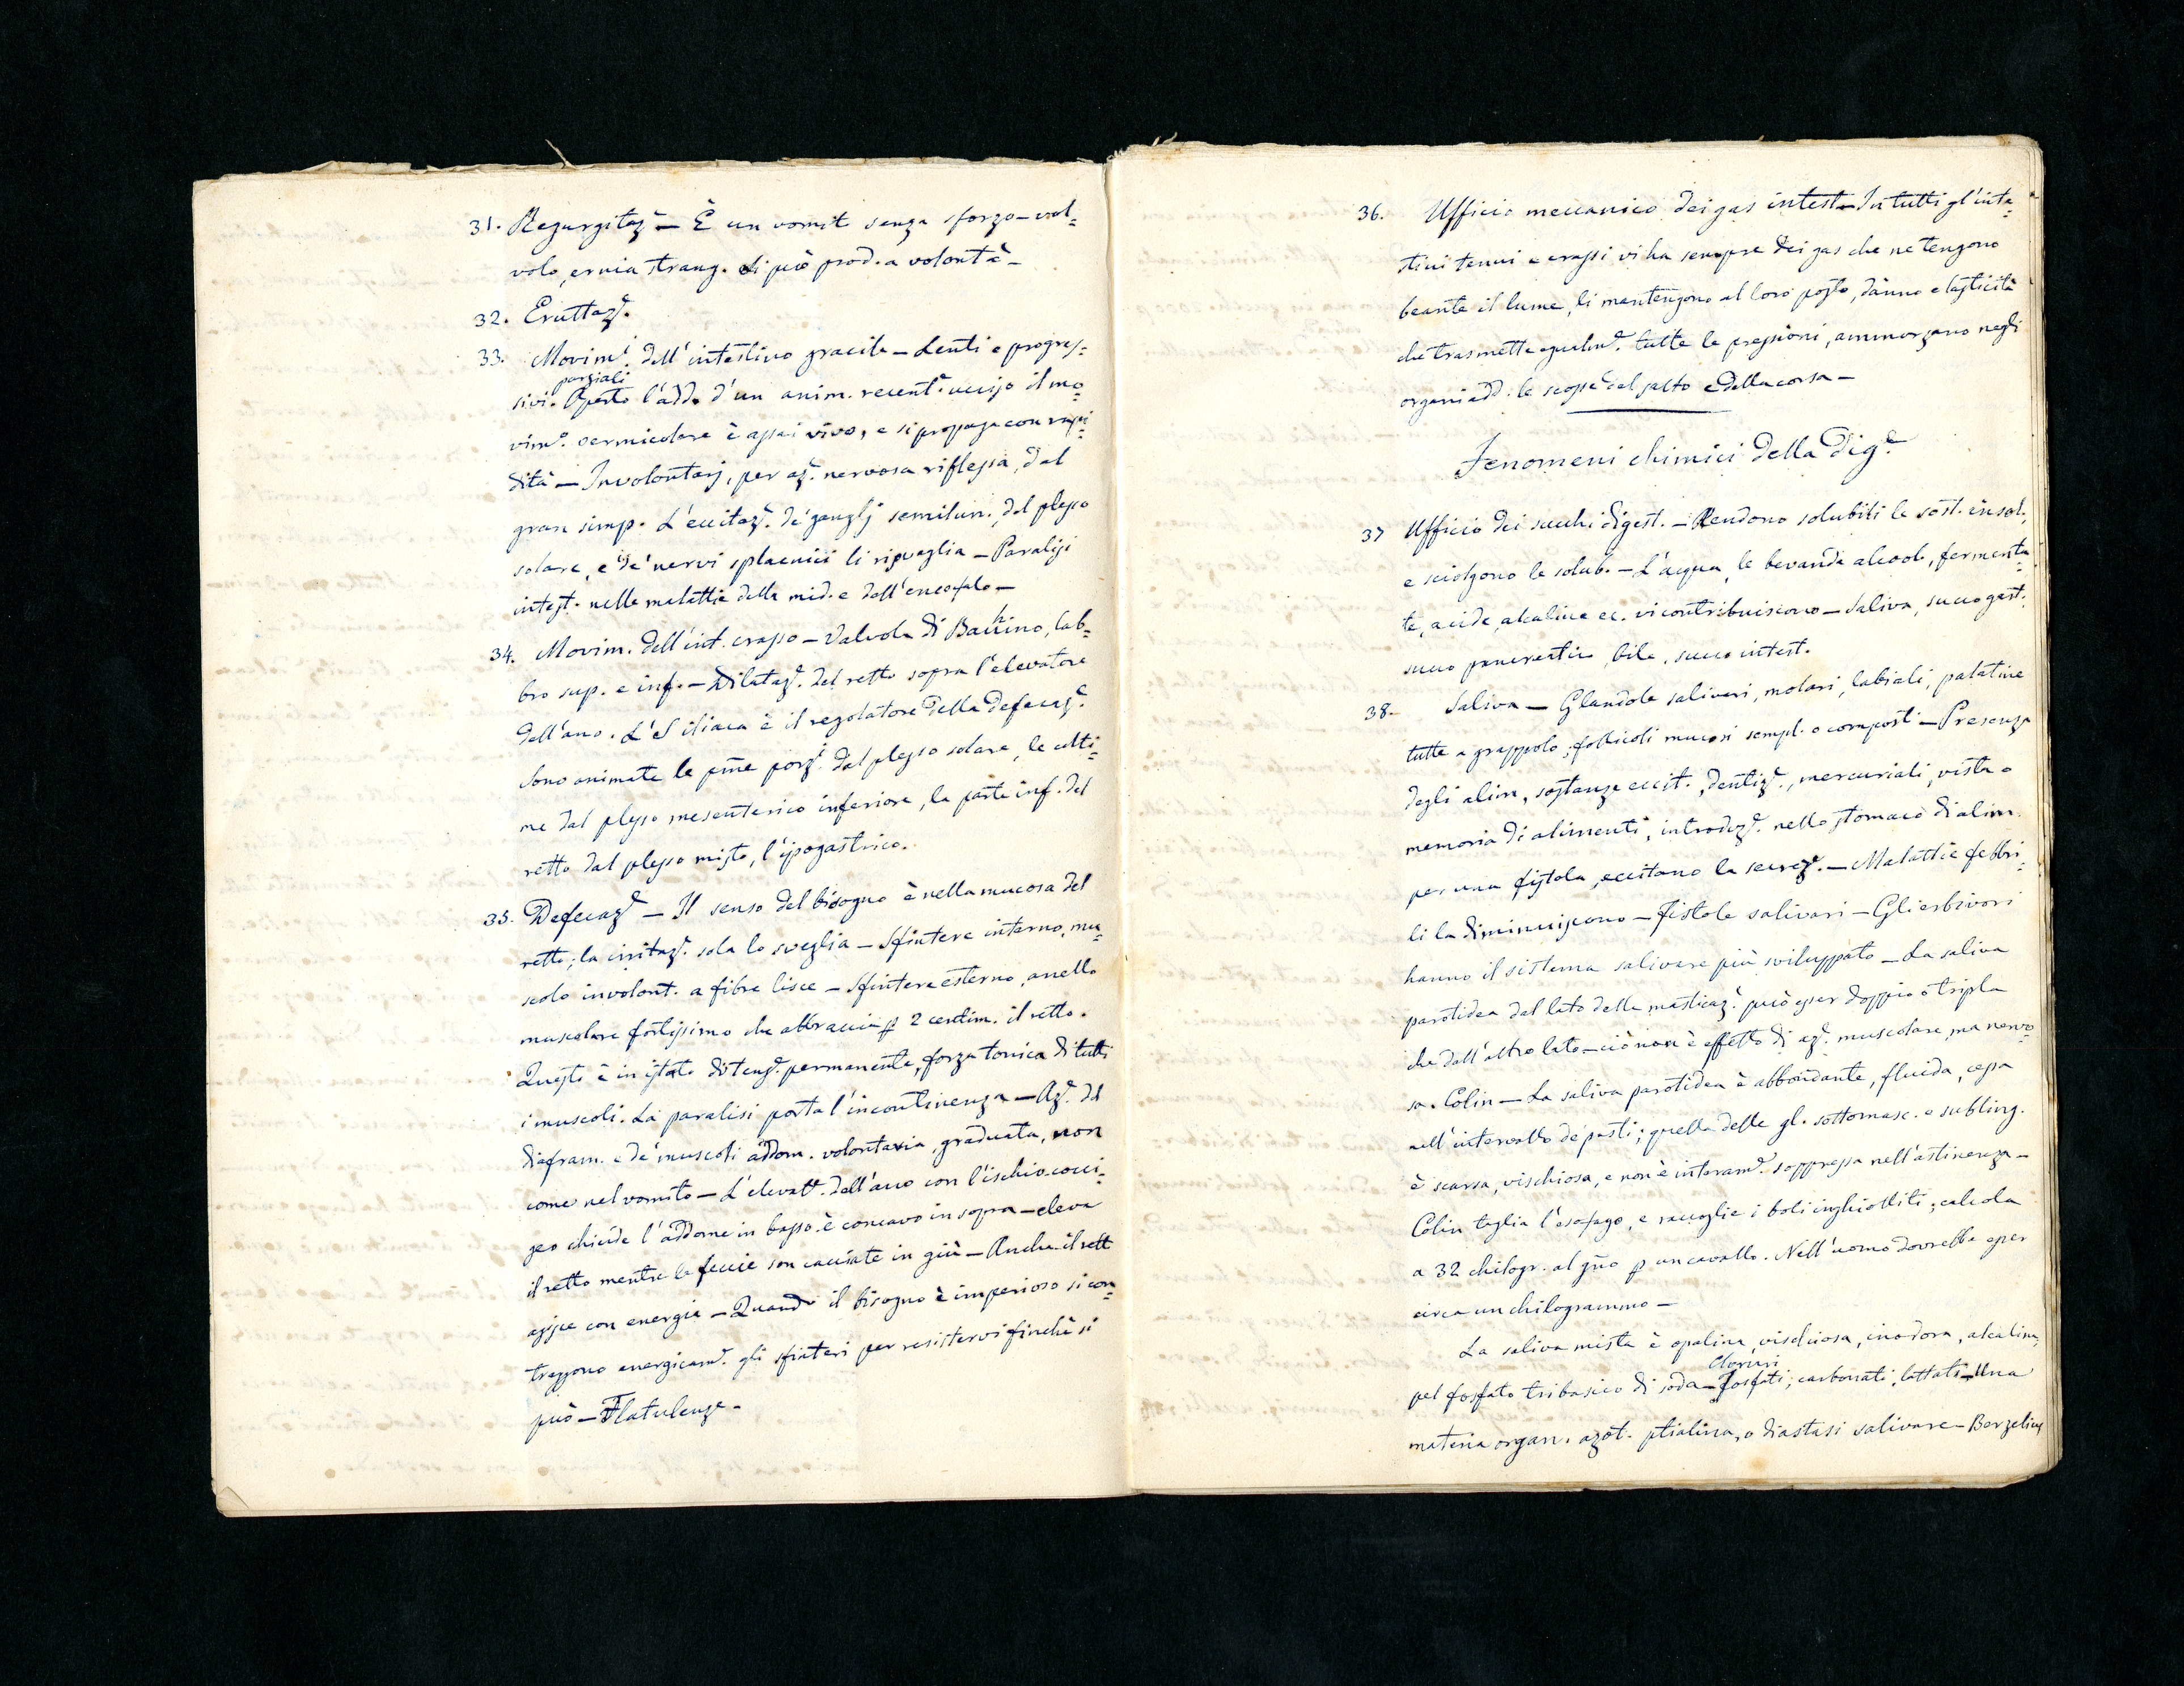 31. Regurgitaz.e — È un vomit senza sforzo — vol=
volo, ernia strang. Si può prod. a volontà —
32. Eruttaz.e
33. Movim.i dell'intestino gracile — Lenti e progres=
parziali
sivi. Aperto l'add. d'un anim. recent.e ucciso il mo=
vim.o vermicolare è assai vivo, e si propaga con rapi=
dità — Involontarj, per az.e nervosa riflessa, dal
gran simp. L'eccitaz.e de' ganglj semilun., del plesso
solare, e de' nervi splacnici li risveglia — Paralisi
intest. nelle malattie della mid. e dell'encefalo —
34. Movim. dell'int. crasso — Valvola di Bauhino, lab=
bro sup. e inf. — Dilataz.e del retto sopra l'elevatore
dell'ano. L'S iliaca è il regolatore della defecaz.e
Sono animate le pme porz.i dal plesso solare, le ulti=
me dal plesso mesenterico inferiore, la parte inf. del
retto dal plesso misto, l'ipogastrico.
35. Defecaz.e — Il senso del bisogno è nella mucosa del
retto; la irritaz.e sola lo sveglia — Sfintere interno, mu=
scolo involont. a fibre lisce — Sfintere esterno, anello
muscolare fortissimo che abbraccia p 2 centim. il retto.
Questo è in istato di tens.e permanente, forza tonica di tutti
i muscoli. La paralisi porta l'incontinenza — Az.e del
diafram. e de' muscoli addom. volontaria, graduata, non
come nel vomito — L'elevat.e dell'ano con l'ischio-cocci=
geo chiude l'addome in basso. è concavo in sopra — eleva
il retto mentre le feccie son cacciate in giù — Anche il rett
agisce con energia — Quando il bisogno è imperioso si con=
traggono energicam.e gli sfinteri per resistervi finchè si
può — Flatulenze —
36. Ufficio meccanico dei gas intest. — In tutti gl'inte=
stini tenui e crassi vi ha sempre dei gas che ne tengono
beante il lume, li mantengono al loro posto, danno elasticità
che trasmette egualm.e tutte le pressioni, ammorzano negli
organi add. le scosse del salto e della corsa —
Fenomeni chimici della Dig.e
37 Ufficio dei succhi digest. — Rendono solubili le sost. insol.,
e sciolgono le solub. — L'acqua, le bevande alcool., fermenta=
te, acide, alcaline ec. vi contribuiscono — Saliva, succo gast.,
succo pancreatico, bile, succo intest.
38 — Saliva — Glandole salivari, molari, labiali, palatine
tutte a grappolo; follicoli mucosi sempl. o composti — Presenza
degli alim., sostanze eccit., dentiz.e, mercuriali, vista o
memoria di alimenti, introduz.e nello stomaco di alim.
per una fistola, eccitano la secrez.e — Malattie febbri=
li la diminuiscono — Fistole salivari — Gli erbivori
hanno il sistema salivare più sviluppato — La saliva
parotidea dal lato della masticaz.e può esser doppia o tripla
che dall'altro lato — ciò non è effetto di az.e muscolare, ma nervo
sa. Colin — La saliva parotidea è abbondante, fluida, cessa
nell'intervallo de' pasti; quella delle gl. sottomasc. e subling.
è scarsa, vischiosa, e non è interam.e soppressa nell'astinenza —
Colin taglia l'esofago, e raccoglie i boli inghiottiti; calcola
a 32 chilogr. al gno p un cavallo. Nell'uomo dovrebbe esser
circa un chilogrammo —
La saliva mista è opalina, vischiosa, inodora, alcalina,
cloruri
pel fosfato tribasico di soda — Fosfati; carbonati, lattati — Una
materia organ. azot. ptialina, o diastasi salivare — Berzelius